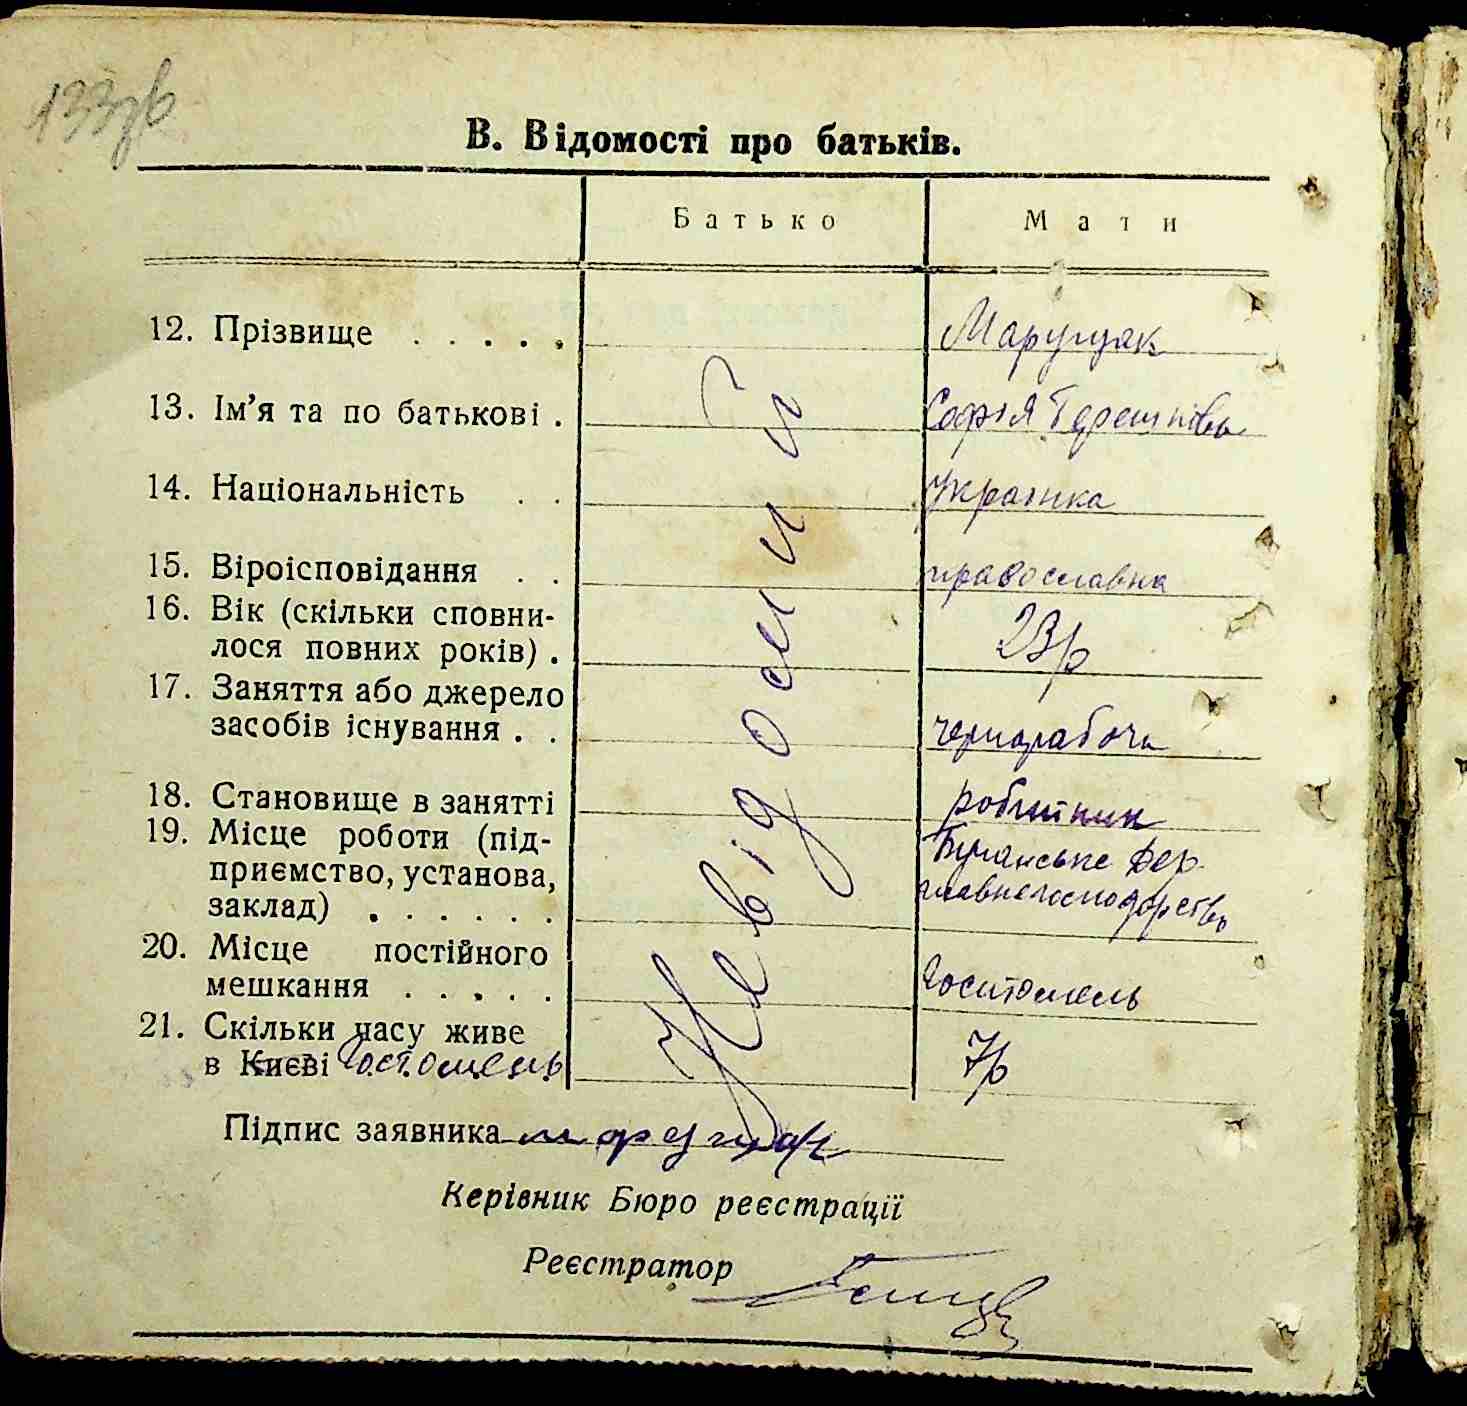 133зв
В. Відомості про батьків.
Батько Мати
12. Прізвище . . . . . Марущак
13. Ім’я та по батькові . Софія
14. Національність . . Українка
15. Віроісповідання . . православна
16. Вік (скільки сповни-
лося повних років) . 23р
17. Заняття або джерело
засобів існування . . чернорабоча
18. Становище в занятті робітник
19. Місце роботи (під-
приємство, установа,
заклад) . . . . . . . Бучанське
20. Місце постійного
мешкання . . . . . Гостомель
21. Скільки часу живе
в Києві Гостомель 7р
Невідомий
Підпис заявника Марущак
Керівник Бюро реєстрації
Реєстратор